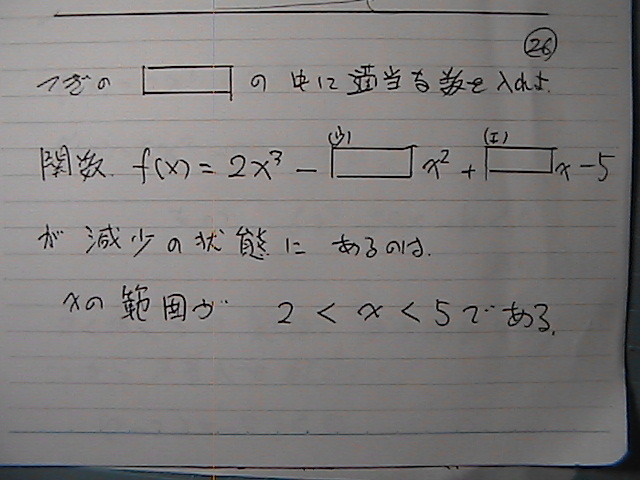 ㉖
つぎの の中に適当な数を入れよ.
関数 f(x) = 2x³ - (ウ) x² + (エ) x - 5
が 減少の状態に あるのは.
xの範囲が 2 < x < 5 である.